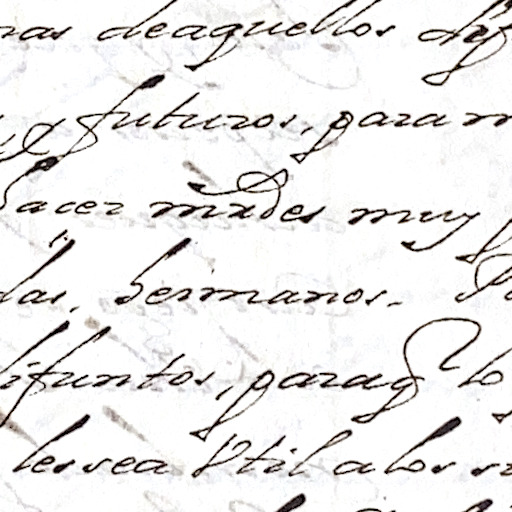 nas deaquellos
y futuros, para m
hacer mrzdes muy
das, hermanos.
difuntos, paraq lo
les sea Vtil alos su